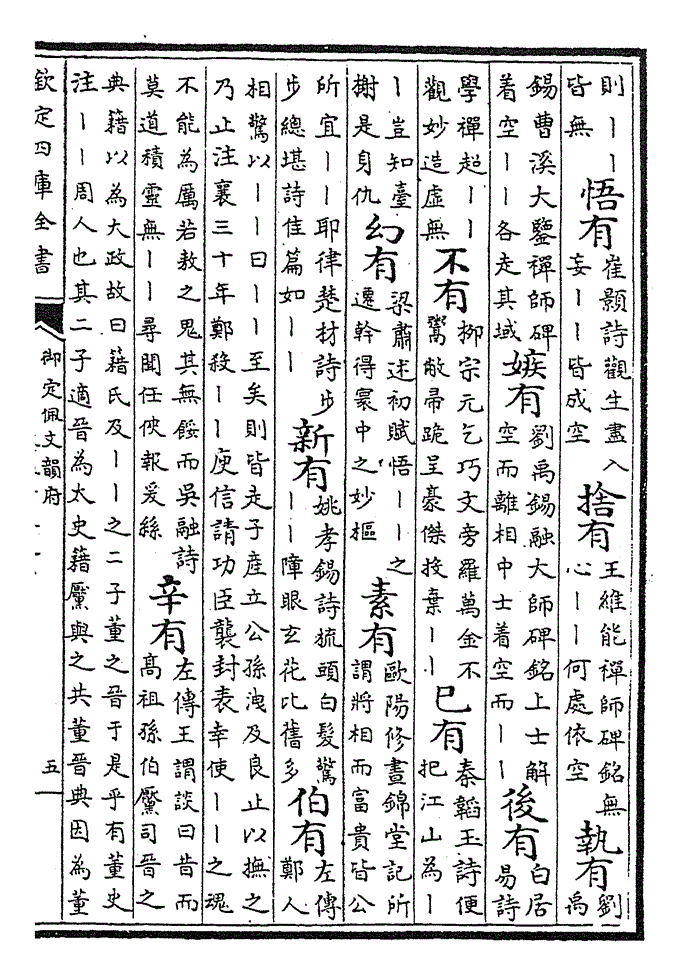 則丨丨皆無 悟有 崔顥詩觀生盡入妄丨丨皆成空 捨有 王維能禪師碑銘無心丨丨何處依空 執有 劉禹
錫曹溪大鑒禪師碑着空丨丨各走其域 嫉有 劉禹錫融大師碑銘上士解空而離相中士着空而丨丨 後有 白居易詩
學禪超丨丨觀妙造虛無 不有 柳宗元乞巧文旁羅萬金不鬻敝帚跪呈豪傑投棄丨丨 已有 秦韜玉詩便把江山為丨
丨豈知臺榭是身仇 幻有 梁肅述初賦悟丨丨之遷幹得寰中之妙樞 素有 歐陽修晝錦堂記所謂將相而富貴皆公
所宜丨丨耶律楚材詩步步總堪詩佳篇如丨丨 新有 姚孝錫詩梳頭白髮驚丨丨障眼玄花比舊多 伯有 左傳鄭人
相驚以丨丨曰丨丨至矣則皆走子產立公孫洩及良止以撫之乃止注襄三十年鄭殺丨丨庾信請功臣襲封表幸使丨丨之魂
不能為厲若敖之鬼其無餒而吳融詩莫道積靈無丨丨尋聞任俠報爰絲 辛有 左傳王謂談曰昔而高祖孫伯黶司晉之
典籍以為大政故曰籍氏及丨丨之二子董之晉于是乎有董史注丨丨周人也其二子適晉為太史籍黶與之共董晉典因為董
欽定四庫全書
御定佩文韻府
五